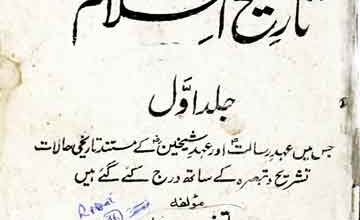 تاریخ اسلام
جلد اوّل
جس میں عہدِ رسالتؐ اور عہدِ شیخینؓ کے مستند تاریخی حالات
تشریح و تبصرہ کے ساتھ درج کئے گئے ہیں
مؤلفہ